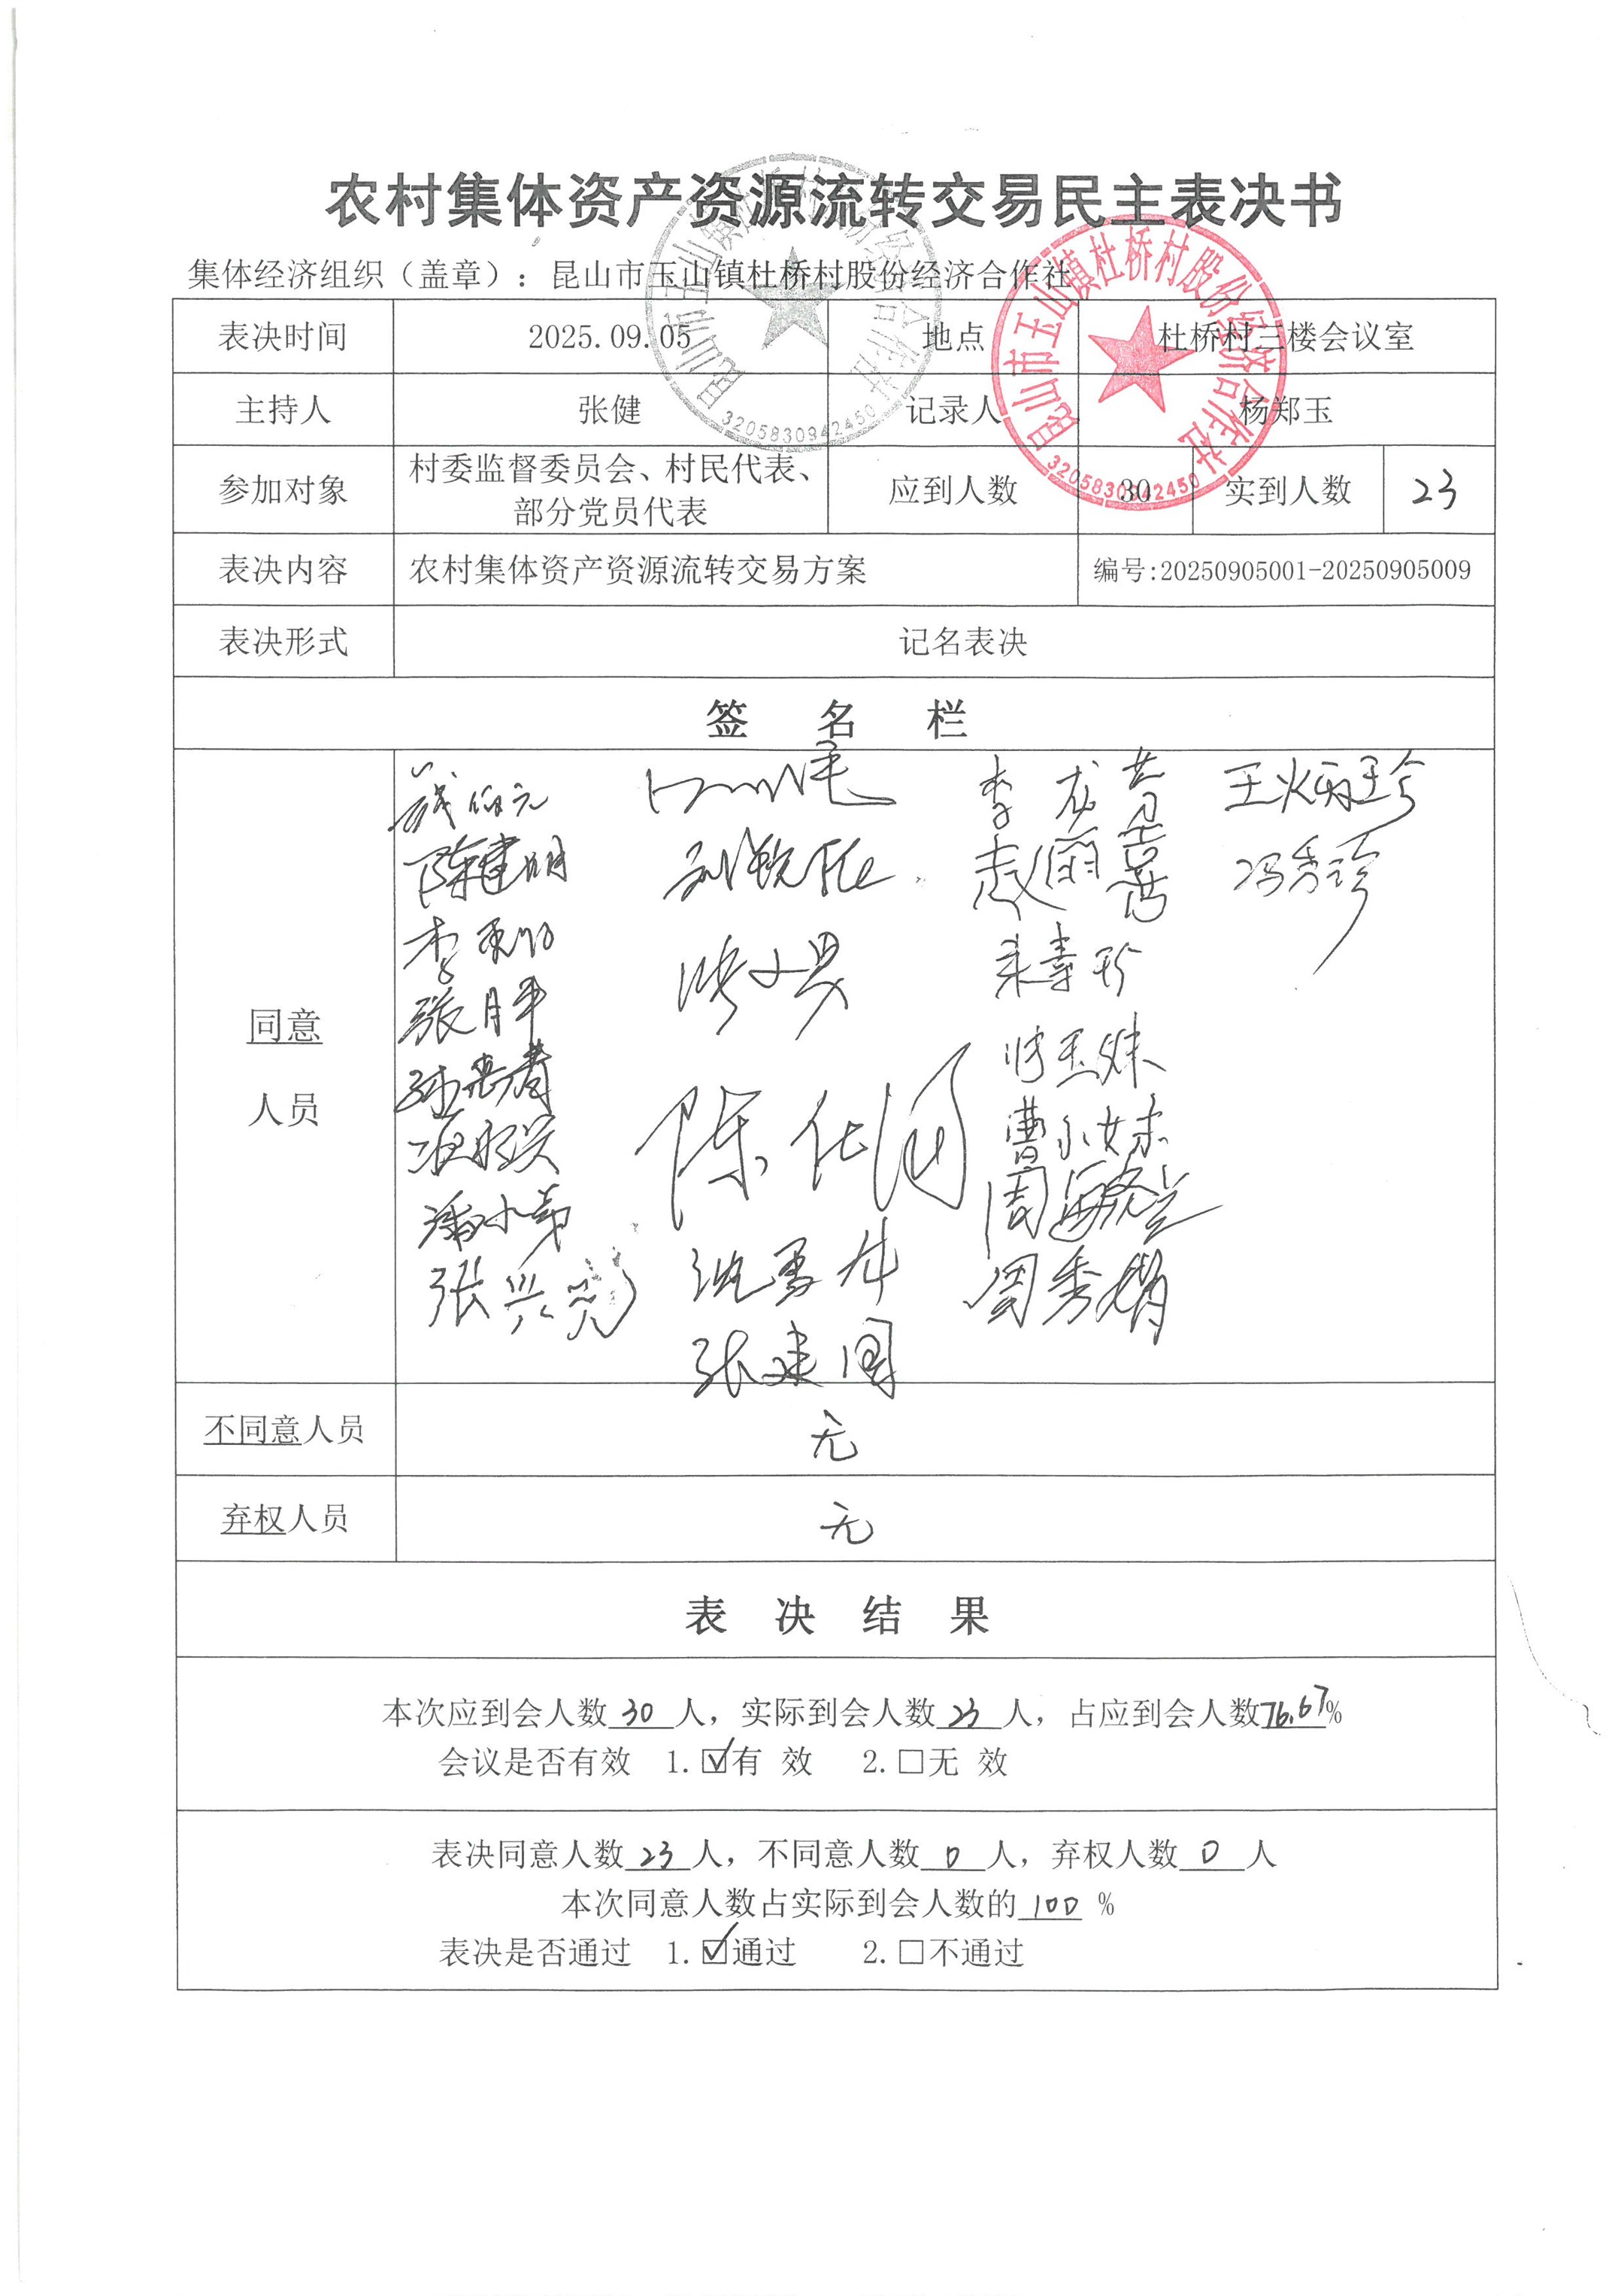 农村集体资产资源流转交易民主表决书
集体经济组织（盖章）：昆山市玉山镇杜桥村股份经济合作社
昆山市玉山镇杜桥村股份经济合作社
3205830942450
昆山市玉山镇杜桥村股份经济合作社
3205830942450
表决时间 2025.09.05 地点 杜桥村三楼会议室
主持人 张健 记录人 杨郑玉
参加对象 村委监督委员会、村民代表、
部分党员代表 应到人数 30 实到人数 23
表决内容 农村集体资产资源流转交易方案 编号:20250905001-20250905009
表决形式 记名表决
签 名 栏
同意
人员
陈建明
冯秀珍
张月平
潘小弟
曹小妹
张兴
周秀娟
张建国
不同意人员 无
弃权人员 无
表 决 结 果
本次应到会人数30人，实际到会人数23人，占应到会人数76.67%
会议是否有效 1.☑有 效 2.□无 效
表决同意人数23人，不同意人数0人，弃权人数0人
本次同意人数占实际到会人数的100 %
表决是否通过 1.☑通过 2.□不通过